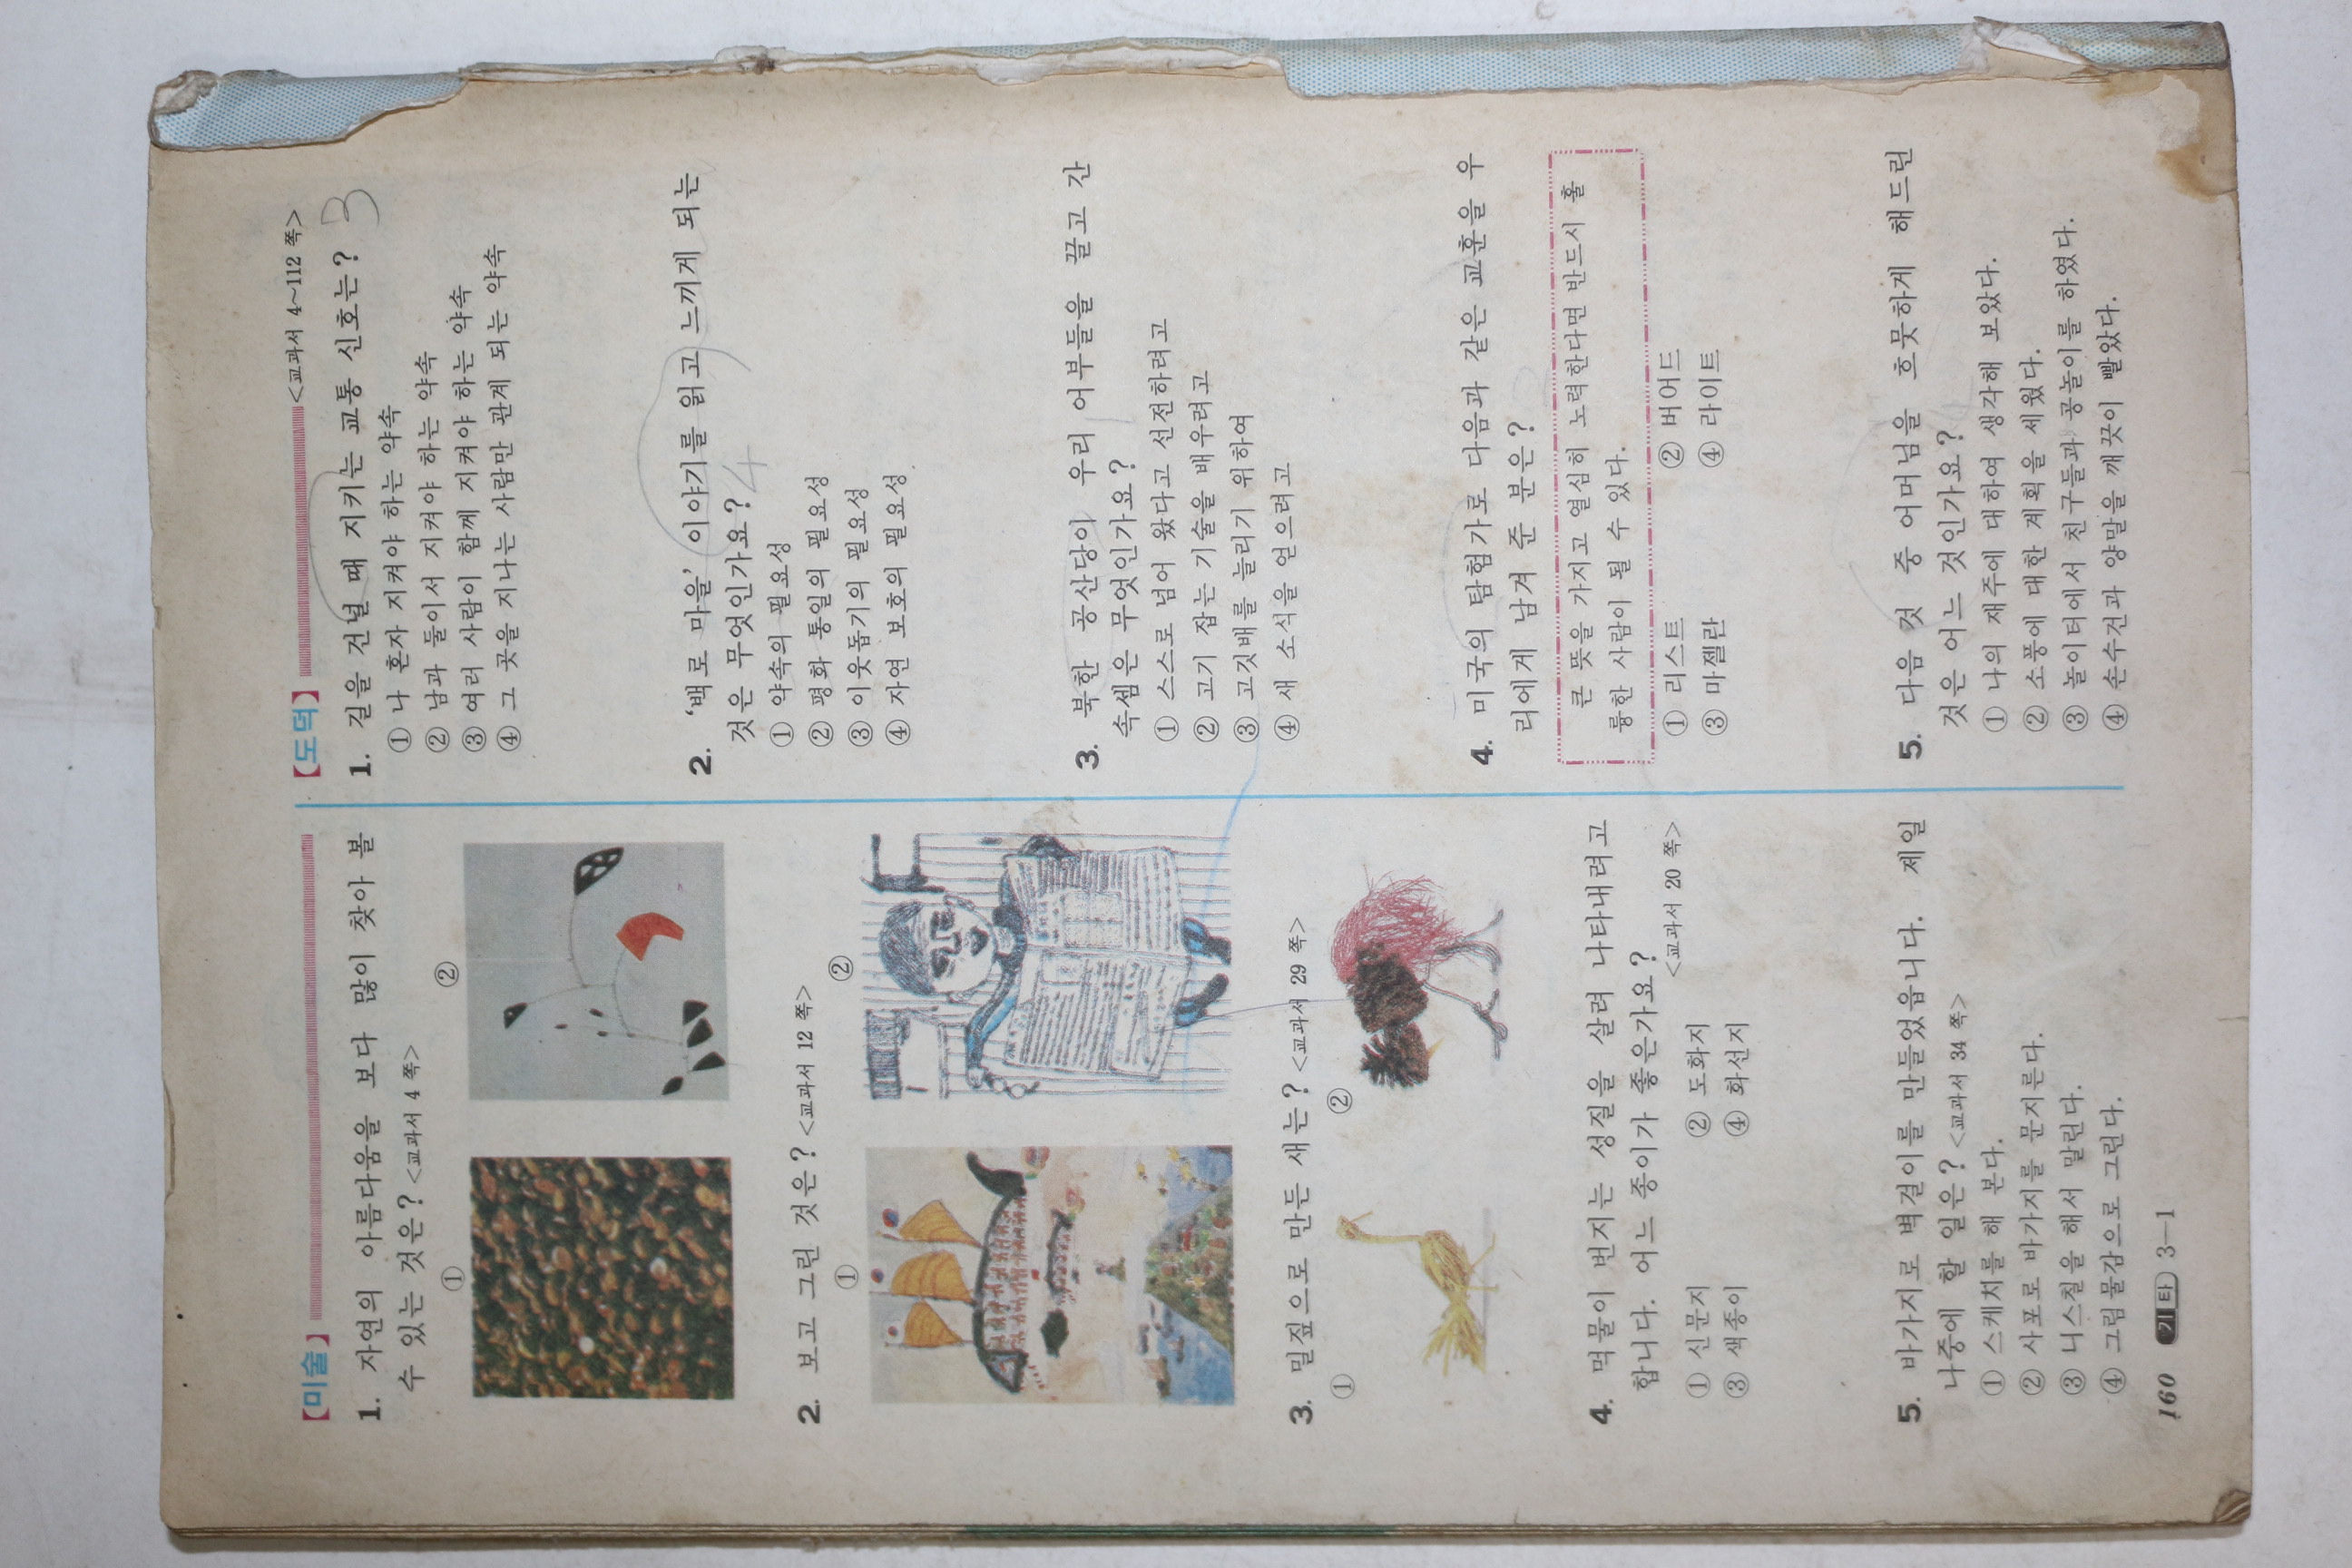 【미술】
1. 자연의 아름다움을 보다 많이 찾아 볼
수 있는 것은? <교과서 4 쪽>
① ②
2. 보고 그린 것은? <교과서 12 쪽>
① ②
3. 밀짚으로 만든 새는? <교과서 29 쪽>
① ②
4. 먹물이 번지는 성질을 살려 나타내려고
합니다. 어느 종이가 좋은가요?
<교과서 20 쪽>
① 신문지 ② 도화지
③ 색종이 ④ 화선지
5. 바가지로 벽걸이를 만들었읍니다. 제일
나중에 할 일은? <교과서 34 쪽>
① 스케치를 해 본다.
② 사포로 바가지를 문지른다.
③ 니스칠을 해서 말린다.
④ 그림물감으로 그린다.
160 기타 3—1
【도덕】 <교과서 4~112 쪽>
1. 길을 건널 때 지키는 교통 신호는? 3
① 나 혼자 지켜야 하는 약속
② 남과 둘이서 지켜야 하는 약속
③ 여러 사람이 함께 지켜야 하는 약속
④ 그 곳을 지나는 사람만 관계 되는 약속
2. ‘백로 마을’ 이야기를 읽고 느끼게 되는
것은 무엇인가요? 4
① 약속의 필요성
② 평화 통일의 필요성
③ 이웃돕기의 필요성
④ 자연 보호의 필요성
3. 북한 공산당이 우리 어부들을 끌고 간
속셈은 무엇인가요?
① 스스로 넘어 왔다고 선전하려고
② 고기 잡는 기술을 배우려고
③ 고깃배를 늘리기 위하여
④ 새 소식을 얻으려고
4. 미국의 탐험가로 다음과 같은 교훈을 우
리에게 남겨 준 분은?
큰 뜻을 가지고 열심히 노력한다면 반드시 훌
륭한 사람이 될 수 있다.
① 리스트 ② 버어드
③ 마젤란 ④ 라이트
5. 다음 것 중 어머님을 흐뭇하게 해드린
것은 어느 것인가요?
① 나의 재주에 대하여 생각해 보았다.
② 소풍에 대한 계획을 세웠다.
③ 놀이터에서 친구들과 공놀이를 하였다.
④ 손수건과 양말을 깨끗이 빨았다.